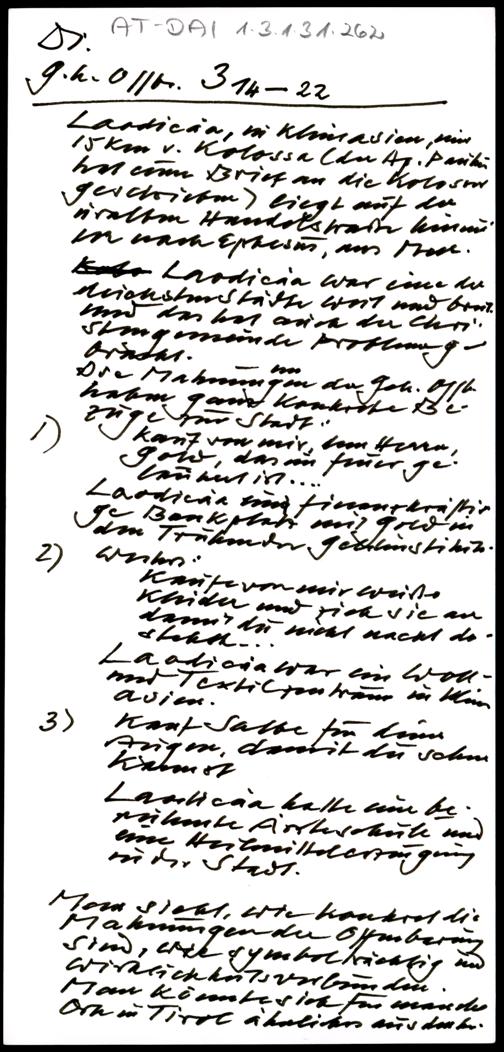 AT-DAI 1.3.1.31.262
Di.
g.h. Offb. 3 14-22
Laodicäa, in Kleinasien, nur
15 km v. Kolossä (der Ap. Paulus
hat einen Brief an die Kolosser
geschrieben) liegt auf der
uralten Handelsstraße
nach Ephesus, ans Meer.
Laodicäa war eine der
reichsten Städte weit und breit.
und das hat auch der Chri-
stengemeinde Probleme ge-
bracht.
Die Mahnungen in der Geh. Offb.
haben ganz konkrete Be-
züge zur Stadt:
1) Kauf von mir, dem Herrn,
Gold, das im Feuer ge-
läutert ist...
Laodicäa finanzkräfti-
ge Bankplatz mit Gold in
den Truhen der Geldinstitute.
2) weiters:
Kaufe von mir weiße
Kleider und zieh sie an
damit du nicht nackt da-
stehst...
Laodicäa war ein Woll-
und Textilzentrum in Klein
asien.
3) Kauf Salbe für deine
Augen, damit du sehen
kannst
Laodicäa hatte eine be-
rühmte Ärzteschule und
eine Heilmittelerzeugung
in der Stadt.
Man sieht, wie konkret die
Mahnungen der Offenbarung
sind, wie symbolträchtig und
wirklichkeitsverbunden.
Man könnte sich für manche
Orte in Tirol ähnliches ausdenken.